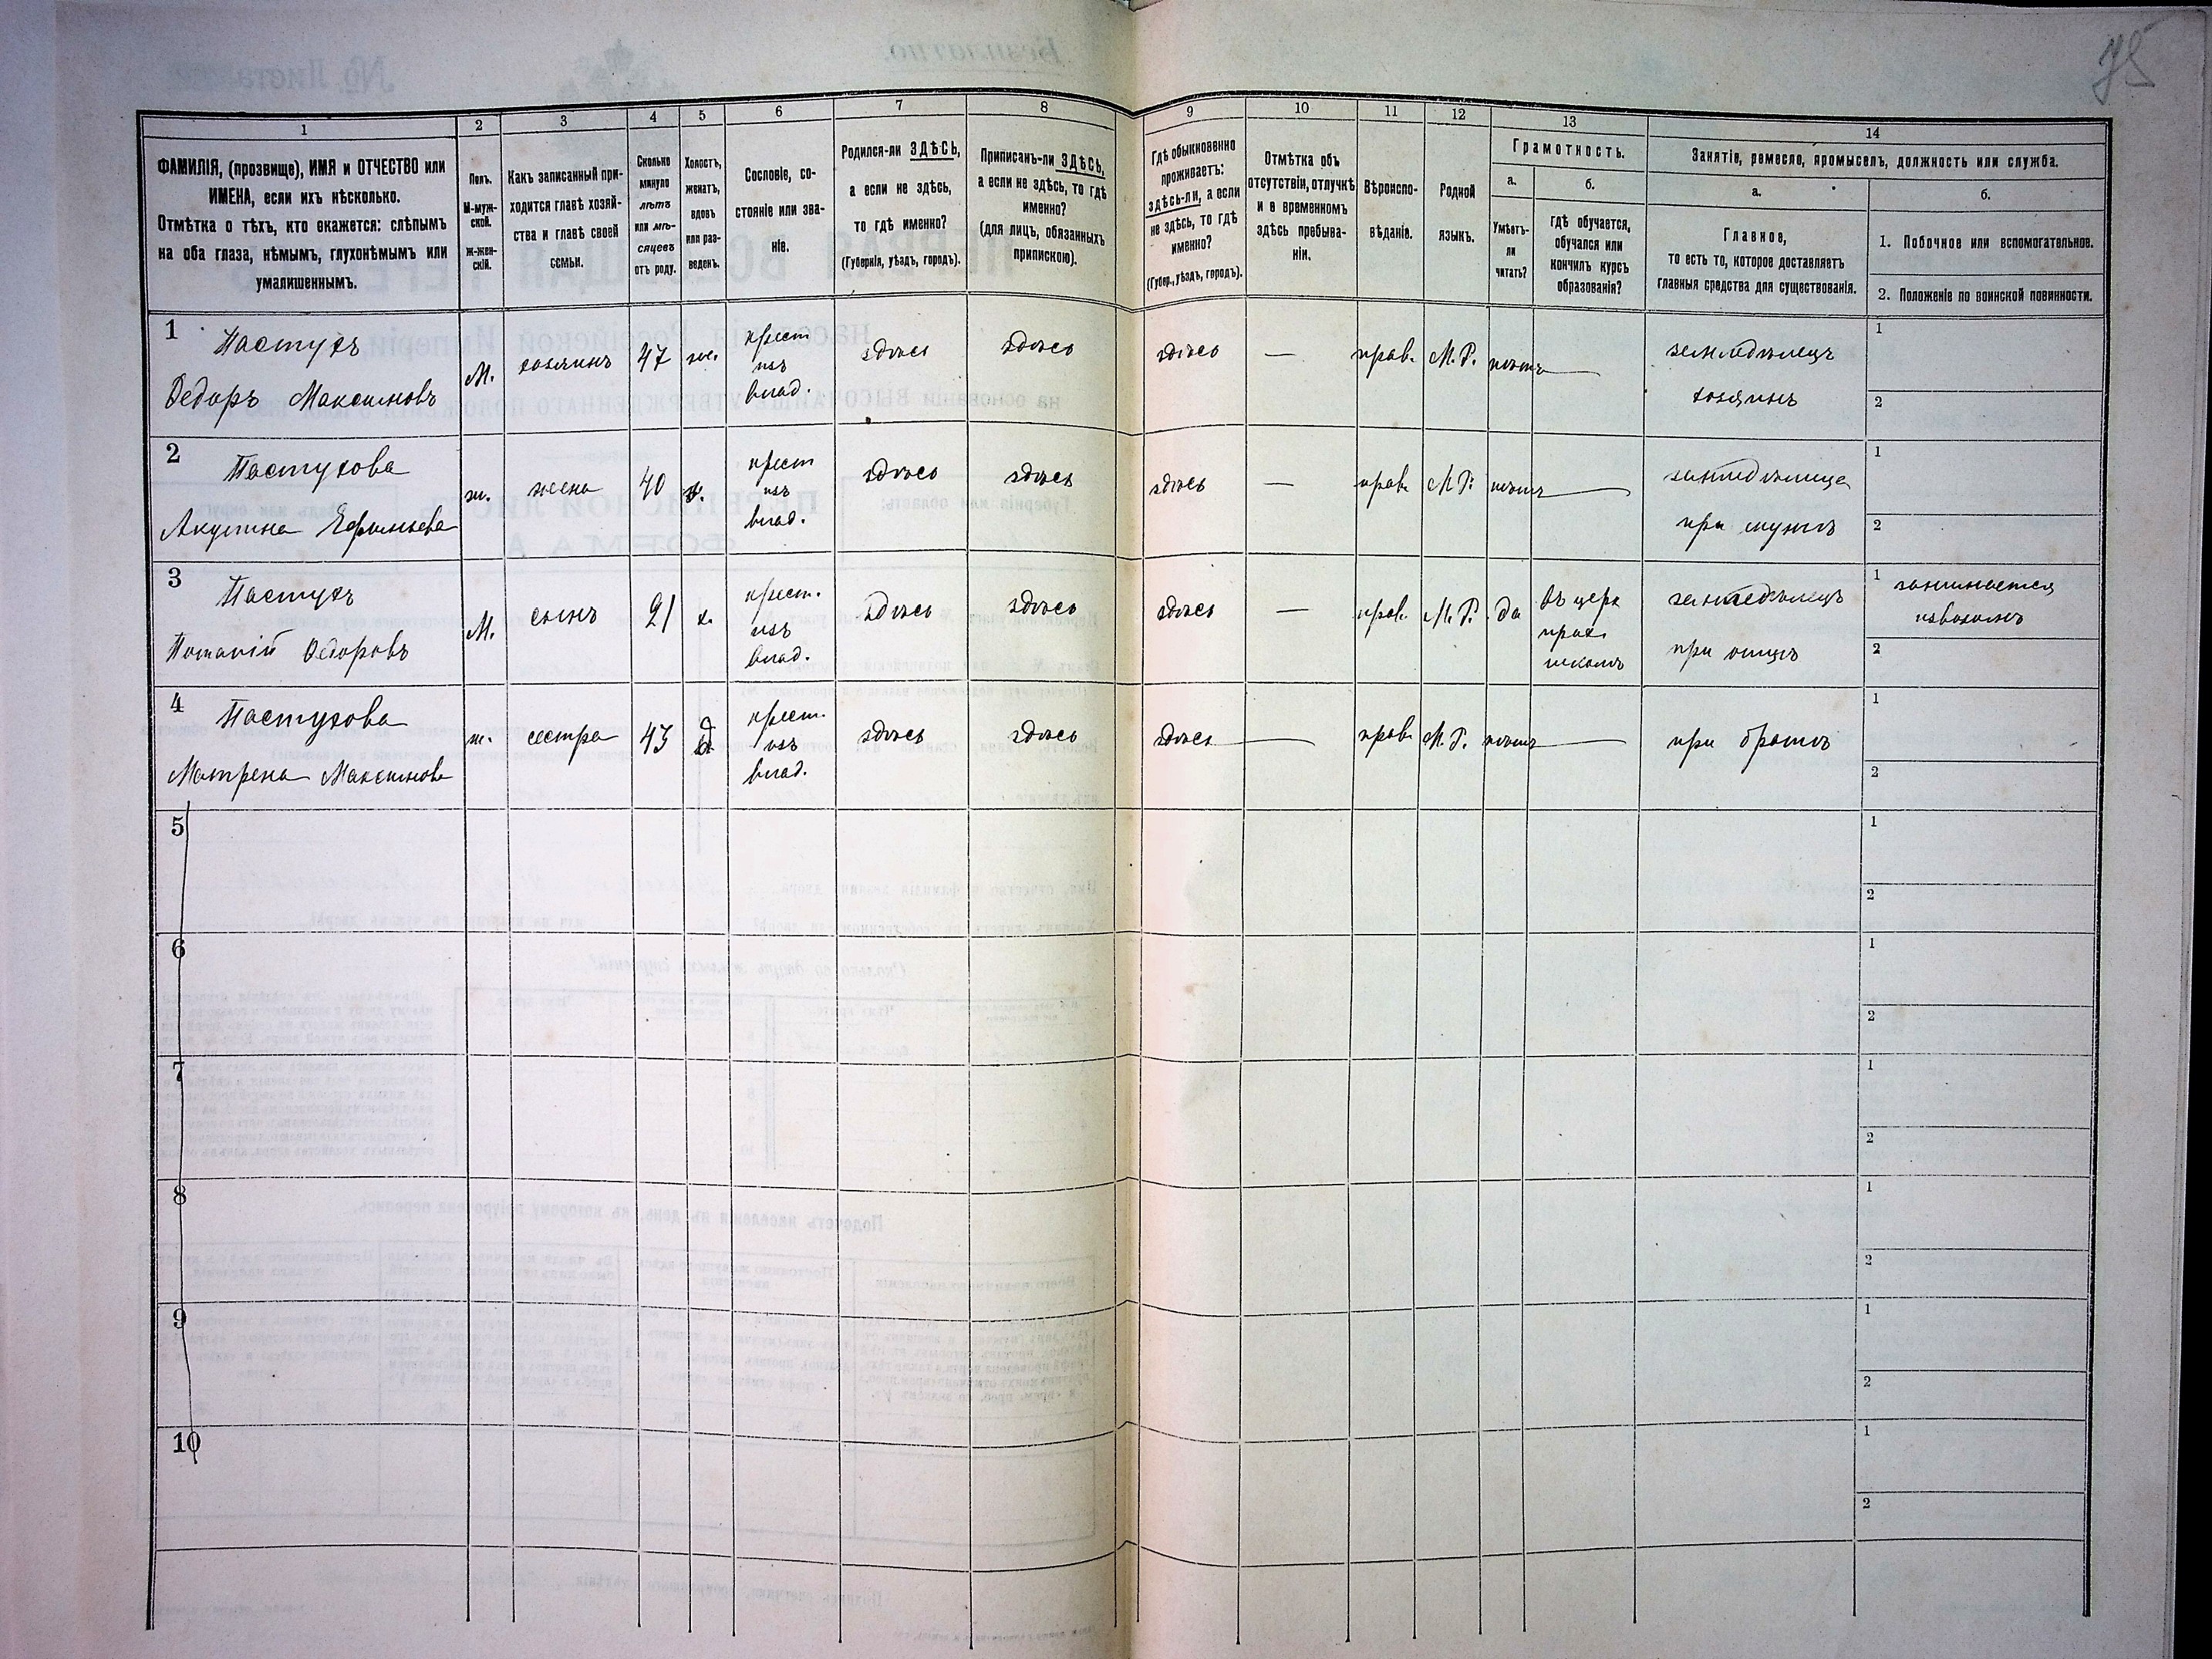 75
1
2
3
4
5
6
7
8
9
10
11
12
13
14
ФАМИЛІЯ, (прозвище), ИМЯ и ОТЧЕСТВО или
ИМЕНА, если ихъ нѣсколько.
Отмѣтка о тѣхъ, кто окажется: слѣпымъ
на оба глаза, нѣмымъ, глухонѣмымъ или
умалишеннымъ.
Полъ.
М-муж-
ской.
ж-жен-
скій.
Какъ записанный при-
ходится главѣ хозяй-
ства и главѣ своей
семьи.
Сколько
минуло
лѣтъ
или мѣ-
сяцевъ
отъ роду.
Холостъ,
женатъ,
вдовъ
или раз-
веденъ.
Сословіе, со-
стояніе или зва-
ніе.
Родился-ли ЗДѢСЬ,
а если не здѣсь,
то гдѣ именно?
(Губернія, уѣздъ, городъ).
Приписанъ-ли ЗДѢСЬ,
а если не здѣсь, то гдѣ
именно?
(для лицъ, обязанныхъ
припискою).
Гдѣ обыкновенно
проживаетъ:
здѣсь-ли, а если
не здѣсь, то гдѣ
именно?
(Губер., уѣздъ, городъ).
Отмѣтка объ
отсутствіи, отлучкѣ
и о временномъ
здѣсь пребыва-
ніи.
Вѣроиспо-
вѣданіе.
Родной
языкъ.
Грамотность.
а.
Умѣетъ-
ли
читать?
б.
гдѣ обучается,
обучался или
кончилъ курсъ
образованія?
Занятіе, ремесло, промыселъ, должность или служба.
а.
Главное,
то есть то, которое доставляетъ
главныя средства для существованія.
б.
1. Побочное или вспомогательное.
2. Положеніе по воинской повинности.
1 Пастухъ
Федоръ Максимовъ
М.
хозяинъ
47
же.
крест
изъ
влад.
здѣсь
здѣсь
здѣсь
—
прав.
М.Р.
нѣтъ —
земледѣлецъ
хозяинъ
1
2
2 Пастухова
Акулина Ефимьева
ж.
жена
40
з.
крест
изъ
влад.
здѣсь
здѣсь
здѣсь
—
прав.
М.Р.
нѣтъ —
земледѣлица
при мужѣ
1
2
3 Пастухъ
Потапій Федоровъ
М.
сынъ
21
х.
крест.
изъ
влад.
здѣсь
здѣсь
здѣсь
—
прав.
М.Р.
да
въ церк
прих.
школѣ
земледѣлецъ
при отцѣ
1 занимается
извозомъ
2
4 Пастухова
Матрена Максимова
ж.
сестра
43
д
крест.
изъ
влад.
здѣсь
здѣсь
здѣсь —
прав.
М.Р.
нѣтъ —
при братѣ
1
2
5
1
2
6
1
2
7
1
2
8
1
2
9
1
2
10
1
2